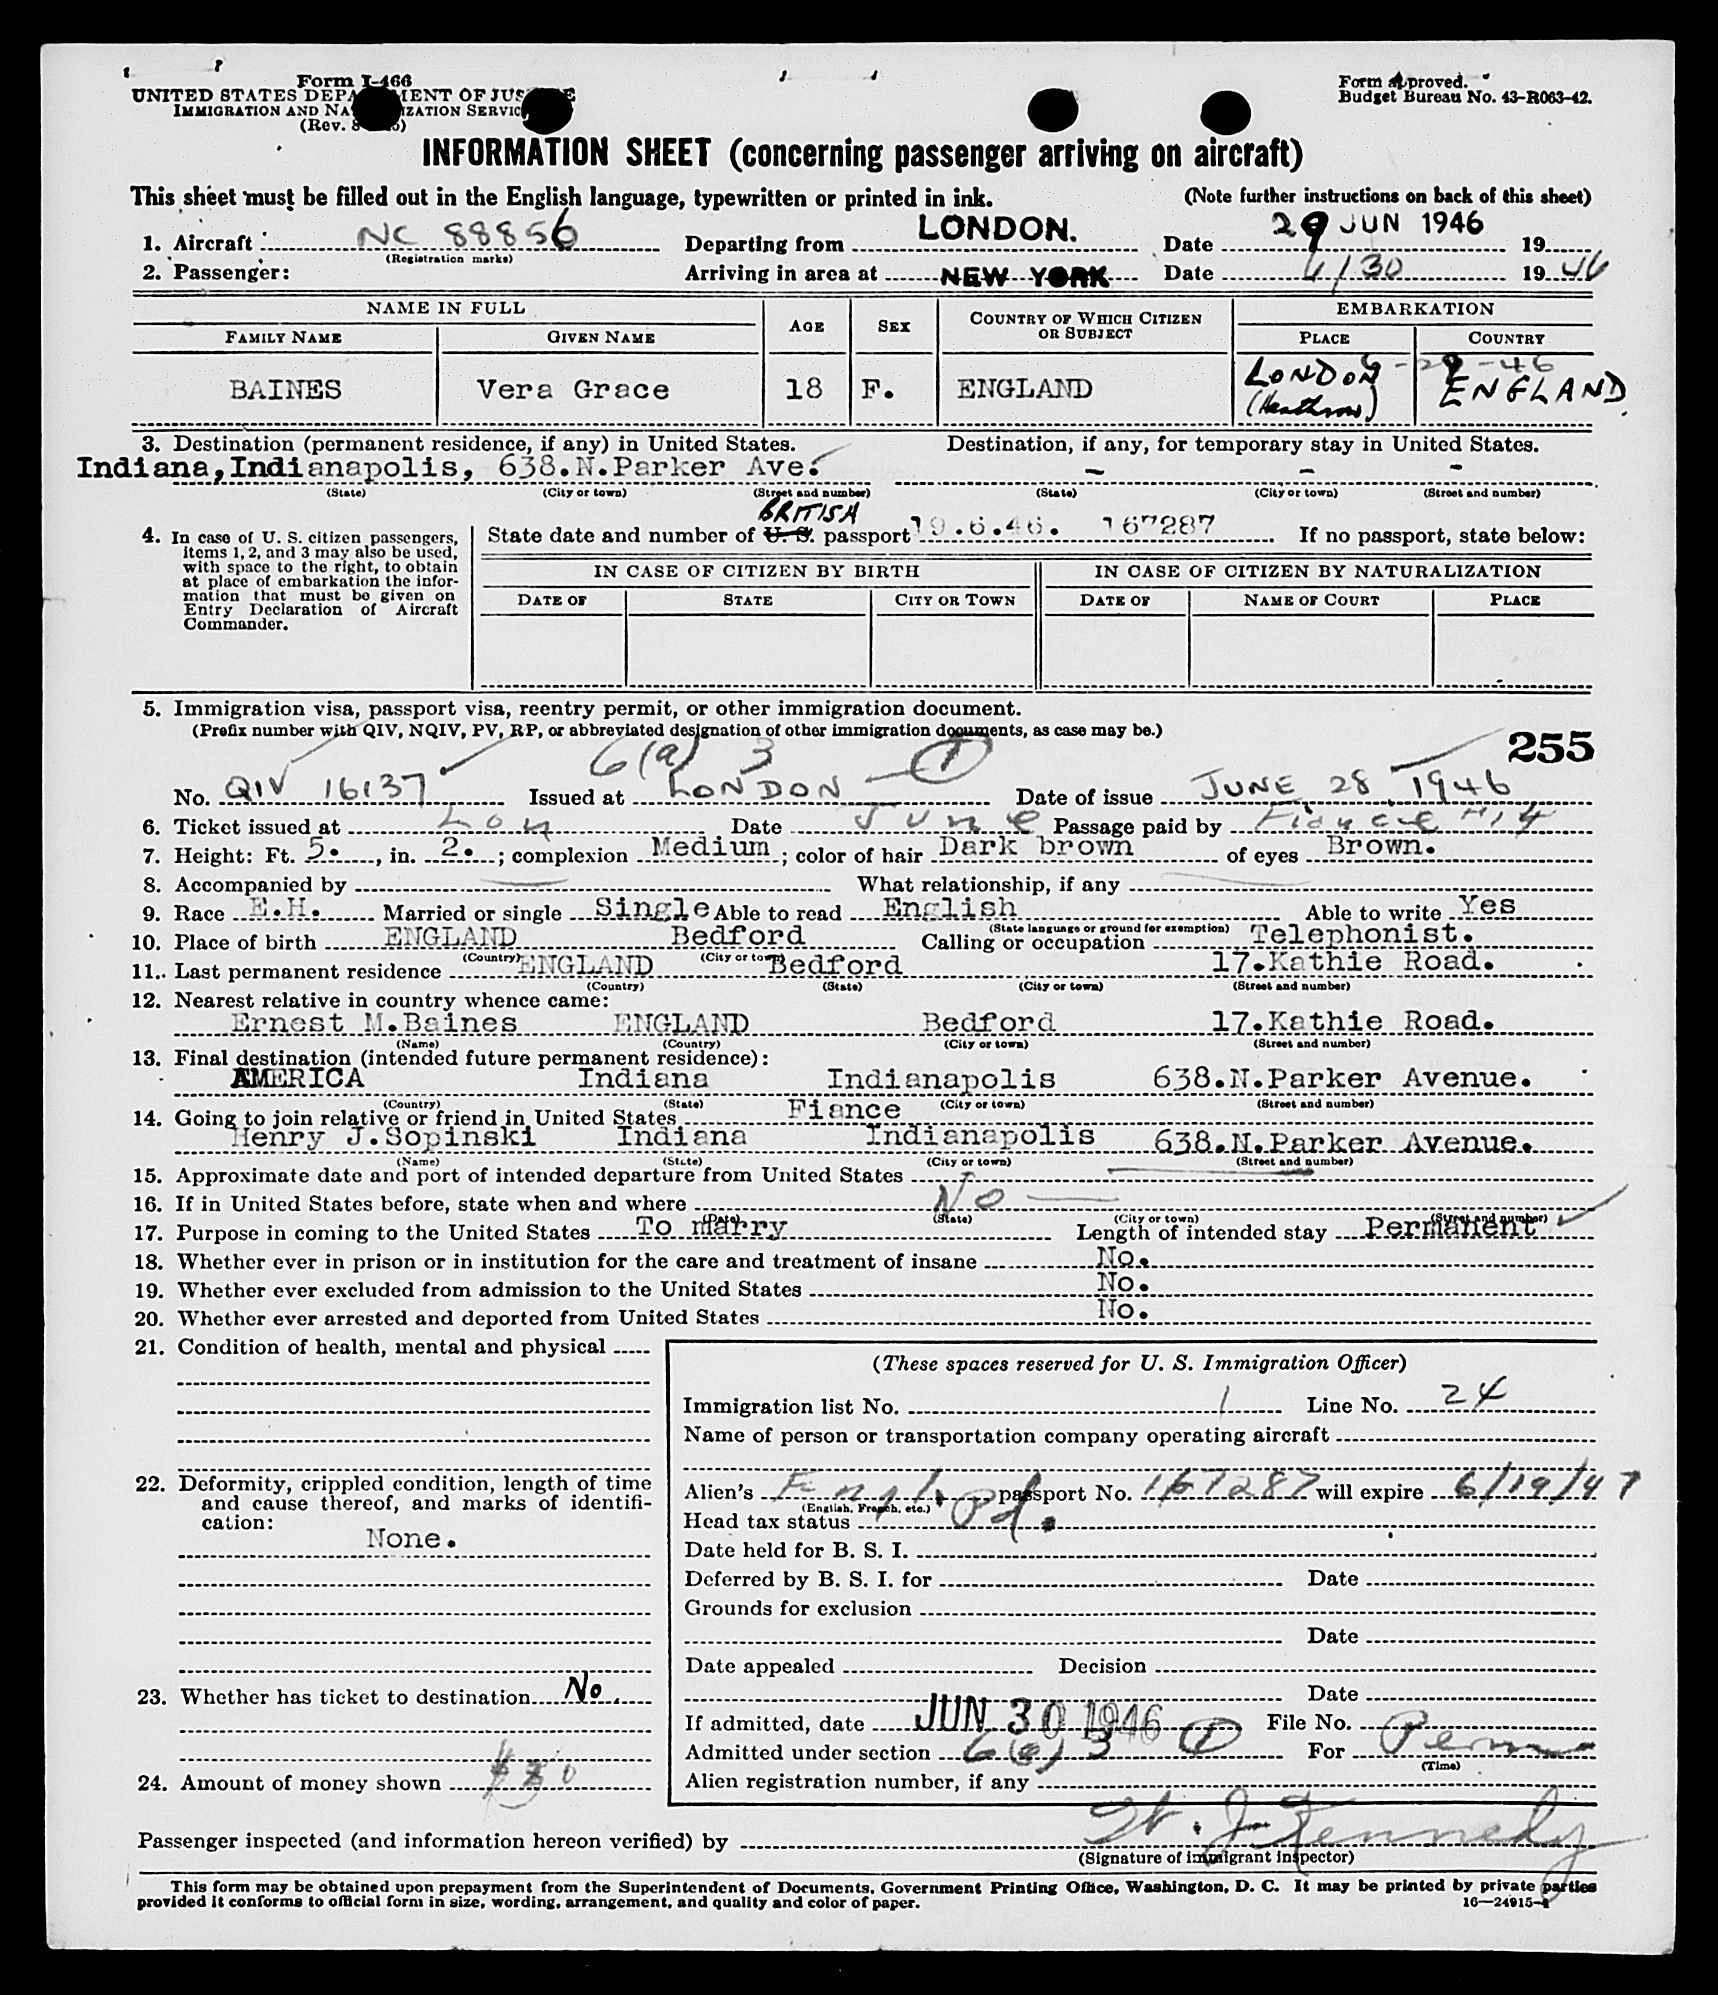 Form I-466
UNITED STATES DEPARTMENT OF JUSTICE
IMMIGRATION AND NATURALIZATION SERVICE
(Rev.
Form approved.
Budget Bureau No. 43-R063-42.
INFORMATION SHEET (concerning passenger arriving on aircraft)
This sheet must be filled out in the English language, typewritten or printed in ink. (Note further instructions on back of this sheet)
1. Aircraft NC 88856 Departing from LONDON. Date 29 JUN 1946 19
(Registration marks)
2. Passenger: Arriving in area at NEW YORK Date 6/30 1946
NAME IN FULL AGE SEX COUNTRY OF WHICH CITIZEN OR SUBJECT EMBARKATION
FAMILY NAME GIVEN NAME PLACE COUNTRY
6-29-46
BAINES Vera Grace 18 F. ENGLAND LONDON (Heathrow) ENGLAND
3. Destination (permanent residence, if any) in United States. Destination, if any, for temporary stay in United States.
Indiana, Indianapolis, 638.N.Parker Ave. - - -
(State) (City or town) (Street and number) (State) (City or town) (Street and number)
4. In case of U. S. citizen passengers, items 1, 2, and 3 may also be used, with space to the right, to obtain at place of embarkation the information that must be given on Entry Declaration of Aircraft Commander.
BRITISH
State date and number of U. S. passport 19.6.46. 167287 If no passport, state below:
IN CASE OF CITIZEN BY BIRTH IN CASE OF CITIZEN BY NATURALIZATION
DATE OF STATE CITY OR TOWN DATE OF NAME OF COURT PLACE
5. Immigration visa, passport visa, reentry permit, or other immigration document.
(Prefix number with QIV, NQIV, PV, RP, or abbreviated designation of other immigration documents, as case may be.)
255
6(a) 3 – 1
No. QIV 16137 Issued at LONDON Date of issue JUNE 28, 1946
6. Ticket issued at Lon Date June Passage paid by Fiance
7. Height: Ft. 5. , in. 2. ; complexion Medium ; color of hair Dark brown of eyes Brown.
8. Accompanied by — What relationship, if any —
9. Race E.H. Married or single Single Able to read English Able to write Yes
(State language or ground for exemption)
10. Place of birth ENGLAND Bedford Calling or occupation Telephonist.
(Country) (City or town)
11. Last permanent residence ENGLAND Bedford 17.Kathie Road.
(Country) (State) (City or town) (Street and number)
12. Nearest relative in country whence came:
Ernest M.Baines ENGLAND Bedford 17.Kathie Road.
(Name) (Country) (City or town) (Street and number)
13. Final destination (intended future permanent residence):
AMERICA Indiana Indianapolis 638.N.Parker Avenue.
(Country) (State) (City or town) (Street and number)
14. Going to join relative or friend in United States Fiance
Henry J.Sopinski Indiana Indianapolis 638.N.Parker Avenue.
(Name) (State) (City or town) (Street and number)
15. Approximate date and port of intended departure from United States —
16. If in United States before, state when and where No —
(Date) (State) (City or town) (Street and number)
17. Purpose in coming to the United States To marry Length of intended stay Permanent
18. Whether ever in prison or in institution for the care and treatment of insane No.
19. Whether ever excluded from admission to the United States No.
20. Whether ever arrested and deported from United States No.
21. Condition of health, mental and physical
22. Deformity, crippled condition, length of time and cause thereof, and marks of identification:
None.
23. Whether has ticket to destination No.
24. Amount of money shown
(These spaces reserved for U. S. Immigration Officer)
Immigration list No. 1 Line No. 24
Name of person or transportation company operating aircraft
Alien's Engl. passport No. 167287 will expire 6/19/47
(English, French, etc.)
Head tax status Pd.
Date held for B. S. I.
Deferred by B. S. I. for Date
Grounds for exclusion
Date
Date appealed Decision
Date
If admitted, date JUN 30 1946 File No.
Admitted under section 6(a) 3 1 For Perm
(Time)
Alien registration number, if any
Passenger inspected (and information hereon verified) by W. J. Kennedy
(Signature of immigrant inspector)
This form may be obtained upon prepayment from the Superintendent of Documents, Government Printing Office, Washington, D. C. It may be printed by private parties
provided it conforms to official form in size, wording, arrangement, and quality and color of paper. 16—24915-1